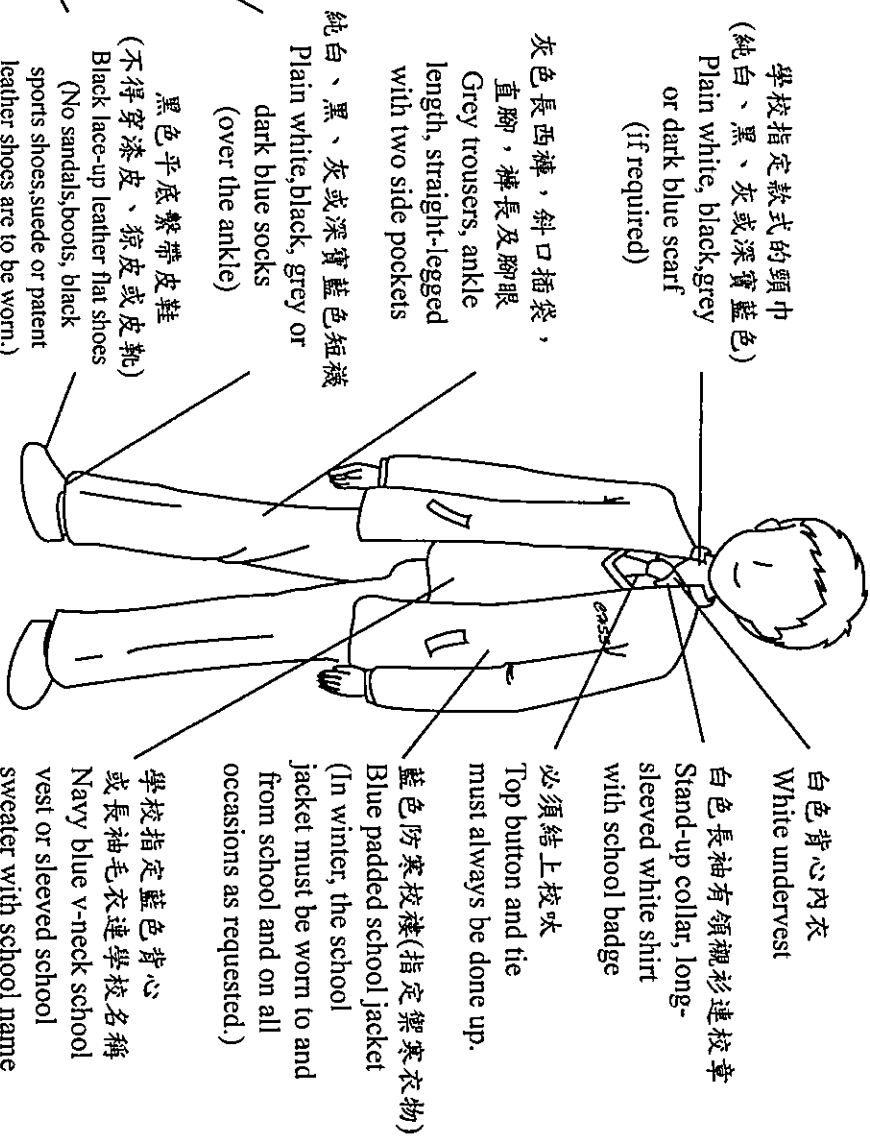 學校指定款式的頸巾
(純白、黑、灰或深寶藍色)
Plain white, black,grey
or dark blue scarf
(if required)
灰色長西褲，斜口插袋，
直腳，褲長及腳眼
Grey trousers, ankle
length, straight-legged
with two side pockets
純白、黑、灰或深寶藍色短襪
Plain white,black, grey or
dark blue socks
(over the ankle)
黑色平底繫帶皮鞋
(不得穿漆皮、猄皮或皮靴)
Black lace-up leather flat shoes
(No sandals,boots, black
sports shoes,suede or patent
leather shoes are to be worn.)
CASS
白色背心內衣
White undervest
白色長袖有領襯衫連校章
Stand-up collar, long-
sleeved white shirt
with school badge
必須結上校呔
Top button and tie
must always be done up.
藍色防寒校褸(指定禦寒衣物)
Blue padded school jacket
(In winter, the school
jacket must be worn to and
from school and on all
occasions as requested.)
學校指定藍色背心
或長袖毛衣連學校名稱
Navy blue v-neck school
vest or sleeved school
sweater with school name